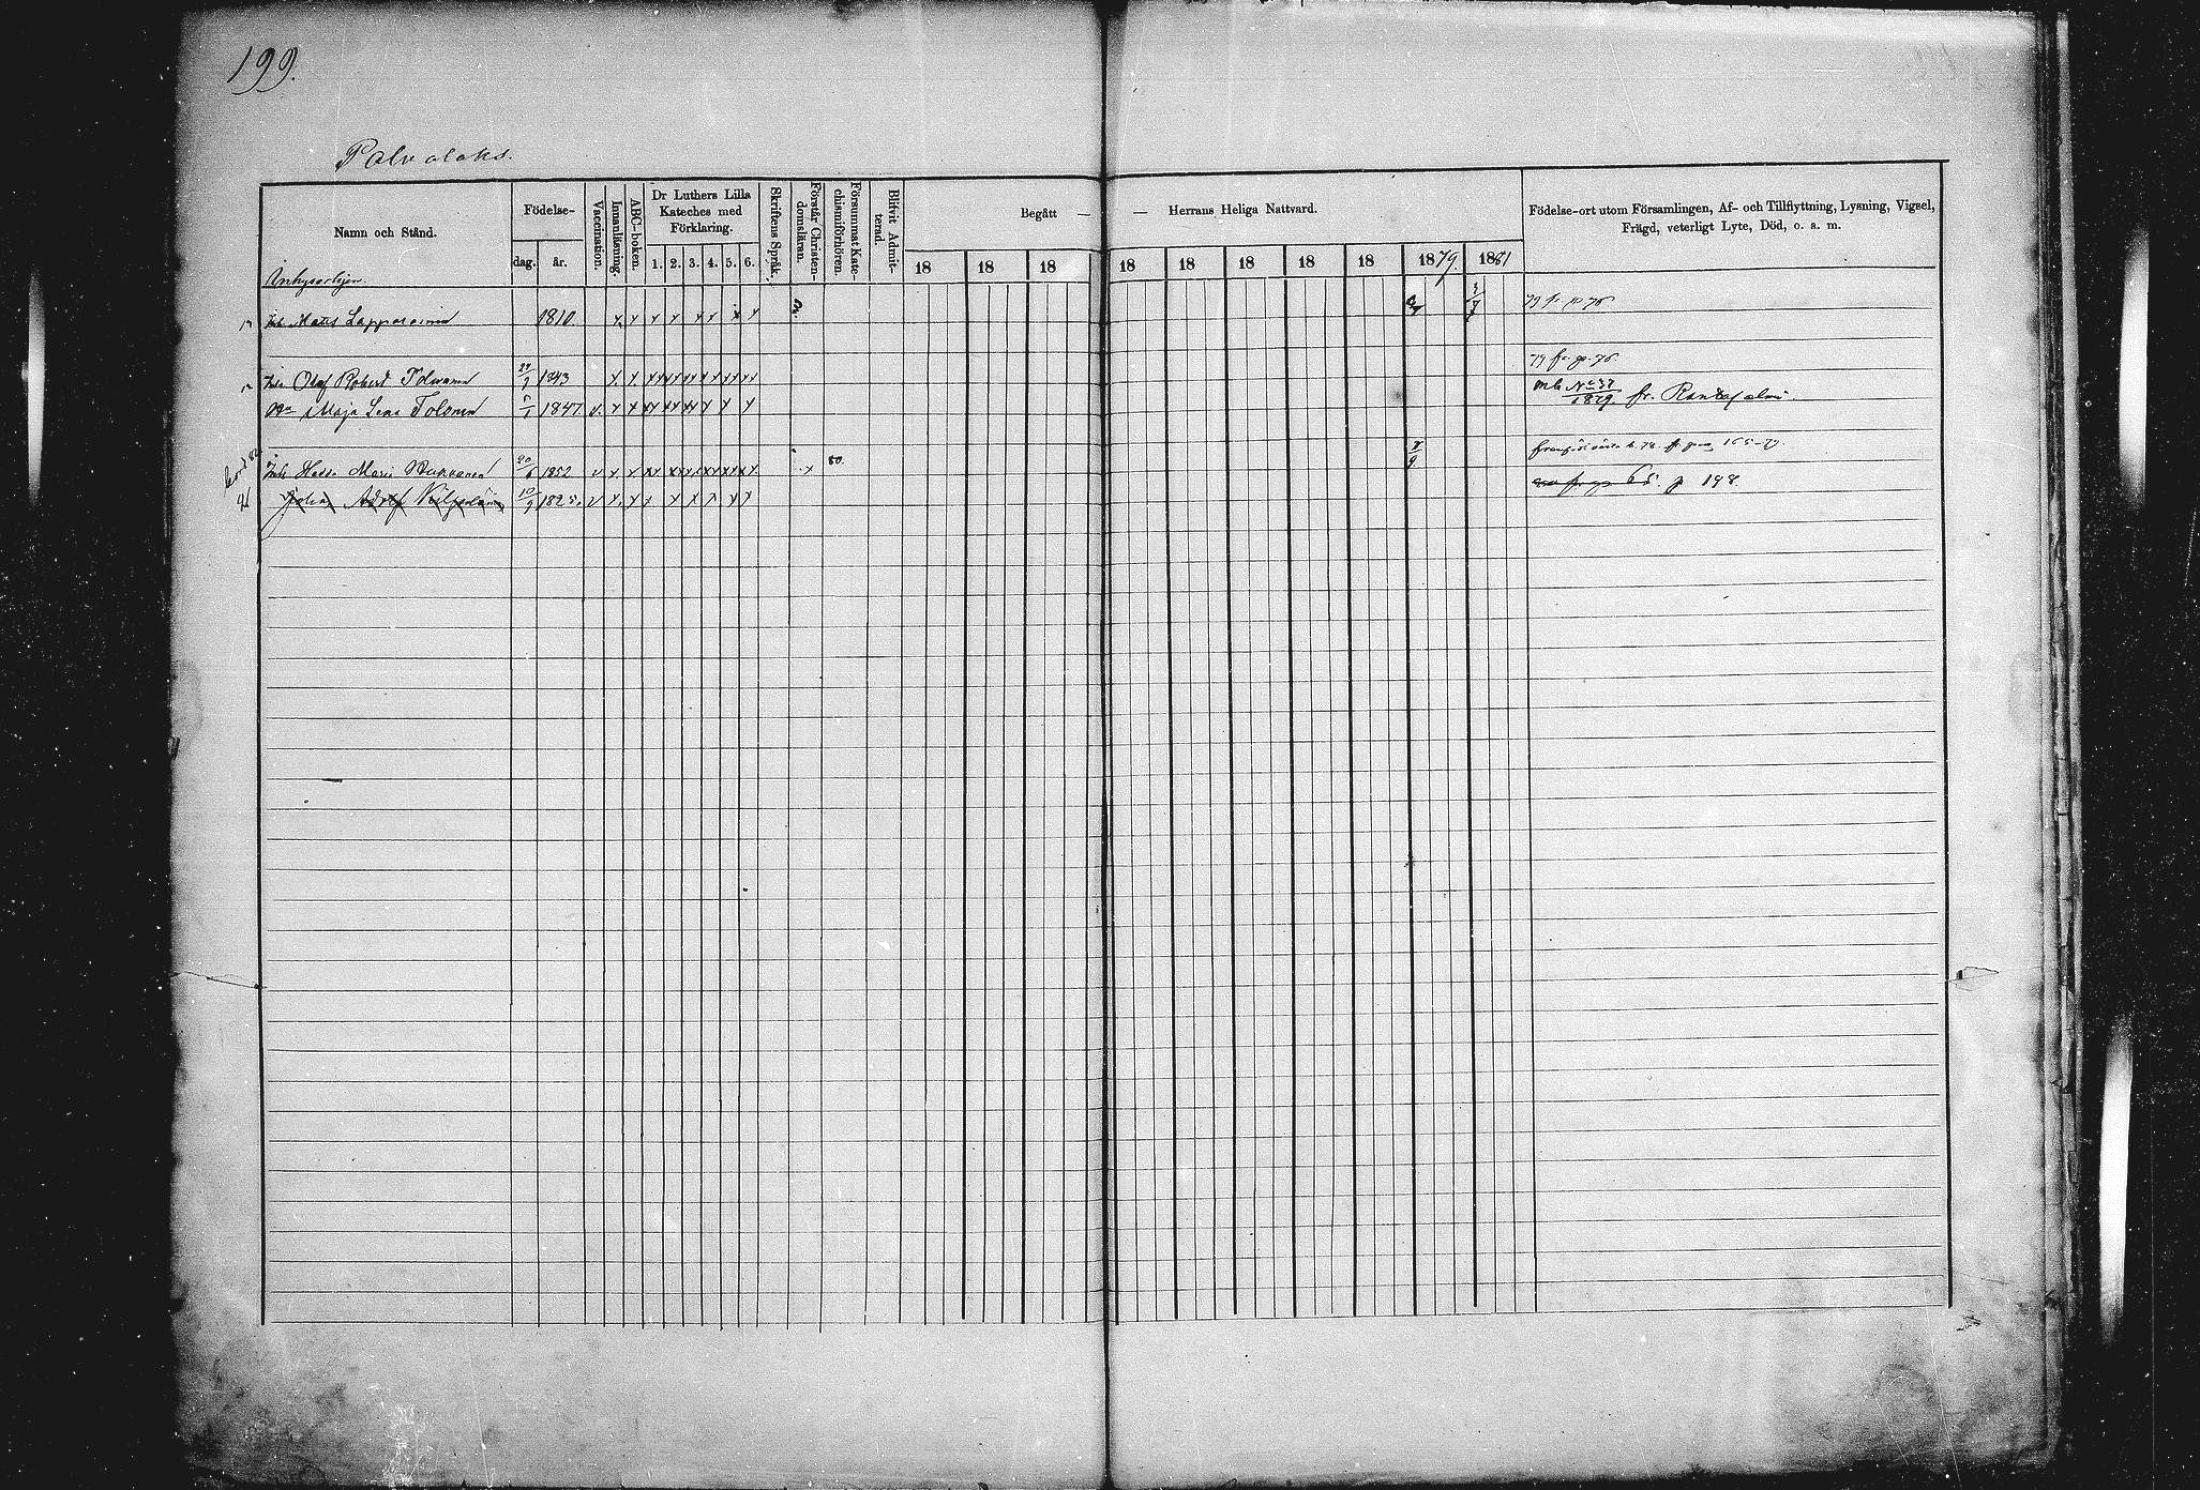 199.
Palvalaks.
Namn och Stånd.
Födelse-
dag. år.
Vaccination.
Innanläsning.
ABC-boken.
Dr Luthers Lilla
Kateches med
Förklaring.
1. 2. 3. 4. 5. 6.
Skriftens Språk.
Förstår Christen-
domsläran.
Försummat Kate-
chismiförhören.
Blifvit Admit-
terad.
Begått — — Herrans Heliga Nattvard.
18 18 18 18 18 18 18 18 1879. 1881
Födelse-ort utom Församlingen, Af- och Tillflyttning, Lysning, Vigsel,
Frägd, veterligt Lyte, Död, o. a. m.
Mats 1810. x x x x x x x x 79 fr. p 76
79 fr. p. 76.
Olof Robert 24/7 1843 x x x x x x x x x x x x
Maja Lena Tolonen 1847 v. x x x x x x x x x x mb No 37/1879. fr. Rantasalmi.
Maria 20/6 1852 v x x x x x x x x x x x x 80. 7/9 165-79.
Johan Adolf 10/9 1825. v x x x x x x x x 65. p 198.